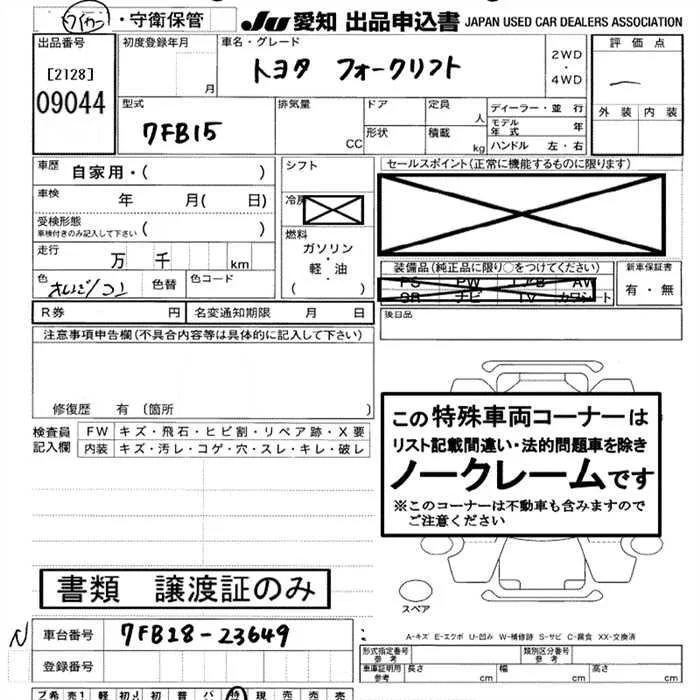 ・守衛保管
JU 愛知 出品申込書 JAPAN USED CAR DEALERS ASSOCIATION
出品番号
[2128]
09044
初度登録年月
月
車名・グレード
トヨタ フォークリフト
2WD
・
4WD
評価点
外装 内装
型式
7FB15
排気量
CC
ドア
形状
定員
人
積載
kg
ディーラー・並 行
モデル年式 年
ハンドル 左・右
車歴
自家用・( )
車検
年 月( 日)
受検形態
車検付きのみ記入して下さい ( )
走行
万 千 km
色
色替
色コード
シフト
冷房
燃料
ガソリン
・
軽・油
( )
セールスポイント(正常に機能するものに限ります)
装備品(純正品に限り○をつけてください)
PS PW エアB AW
SR ナビ TV カワシート
新車保証書
有・無
後日品
R券 円
名変通知期限 月 日
注意事項申告欄(不具合内容等は具体的に記入して下さい)
修復歴 有 (箇所 )
検査員記入欄
FW キズ・飛石・ヒビ割・リペア跡・X要
内装 キズ・汚レ・コゲ・穴・スレ・キレ・破レ
この特殊車両コーナーは
リスト記載間違い・法的問題車を除き
ノークレームです
※このコーナーは不動車も含みますので
ご注意ください
書類 譲渡証のみ
スペア
A-キズ E-エクボ U-凹み W-補修跡 S-サビ C-腐食 XX-交換済
N
車台番号
7FB18-23649
登録番号
形式指定番号
参考
類別区分番号
参考
車庫証明用
参考
長さ cm
幅 cm
高さ cm